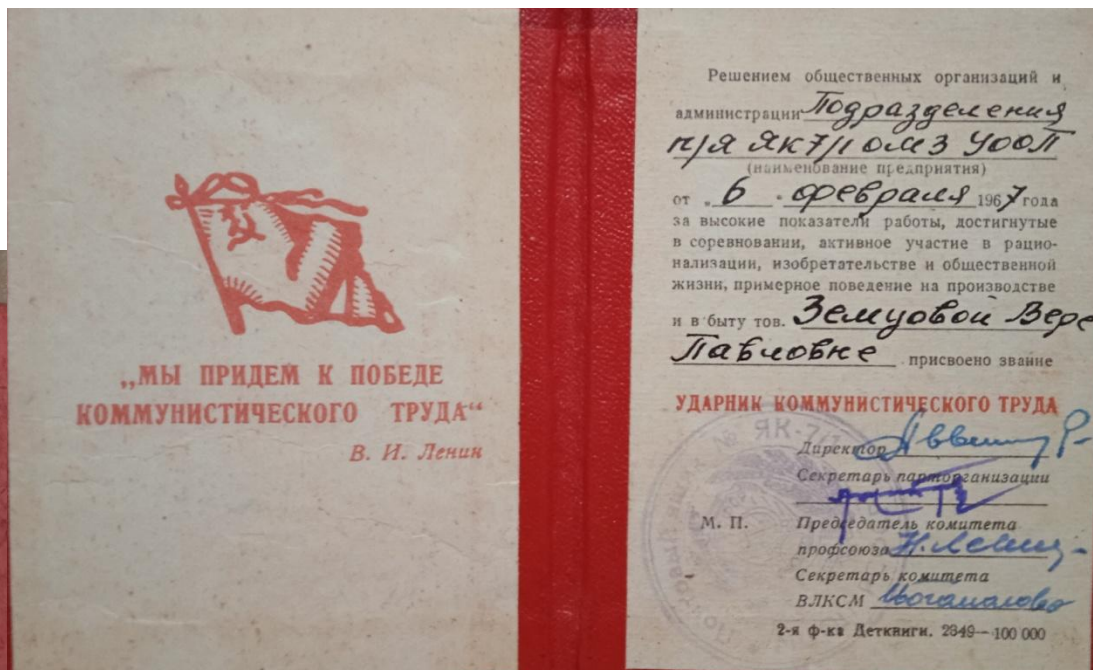 „МЫ ПРИДЕМ К ПОБЕДЕ
КОММУНИСТИЧЕСКОГО ТРУДА“
В. И. Ленин
Решением общественных организаций и
администрации Подразделения
п/я ЯК 7/1 ОМЗ УООП
(наименование предприятия)
от „6 “ февраля 1967 года
за высокие показатели работы, достигнутые
в соревновании, активное участие в рацио-
нализации, изобретательстве и общественной
жизни, примерное поведение на производстве
и в быту тов. Земцовой Вере
Павловне присвоено звание
УДАРНИК КОММУНИСТИЧЕСКОГО ТРУДА
Директор
Секретарь парторганизации
М. П. Председатель комитета
профсоюза
Секретарь комитета
ВЛКСМ
2-я ф-ка Деткниги. 2349—100 000
№ ЯК-7/1